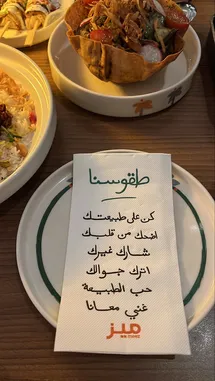 طقوسنا
كن على طبيعتك
اضحك من قلبك
شارك غيرك
اترك جوالك
حب الطبيعة
غني معانا
ميز